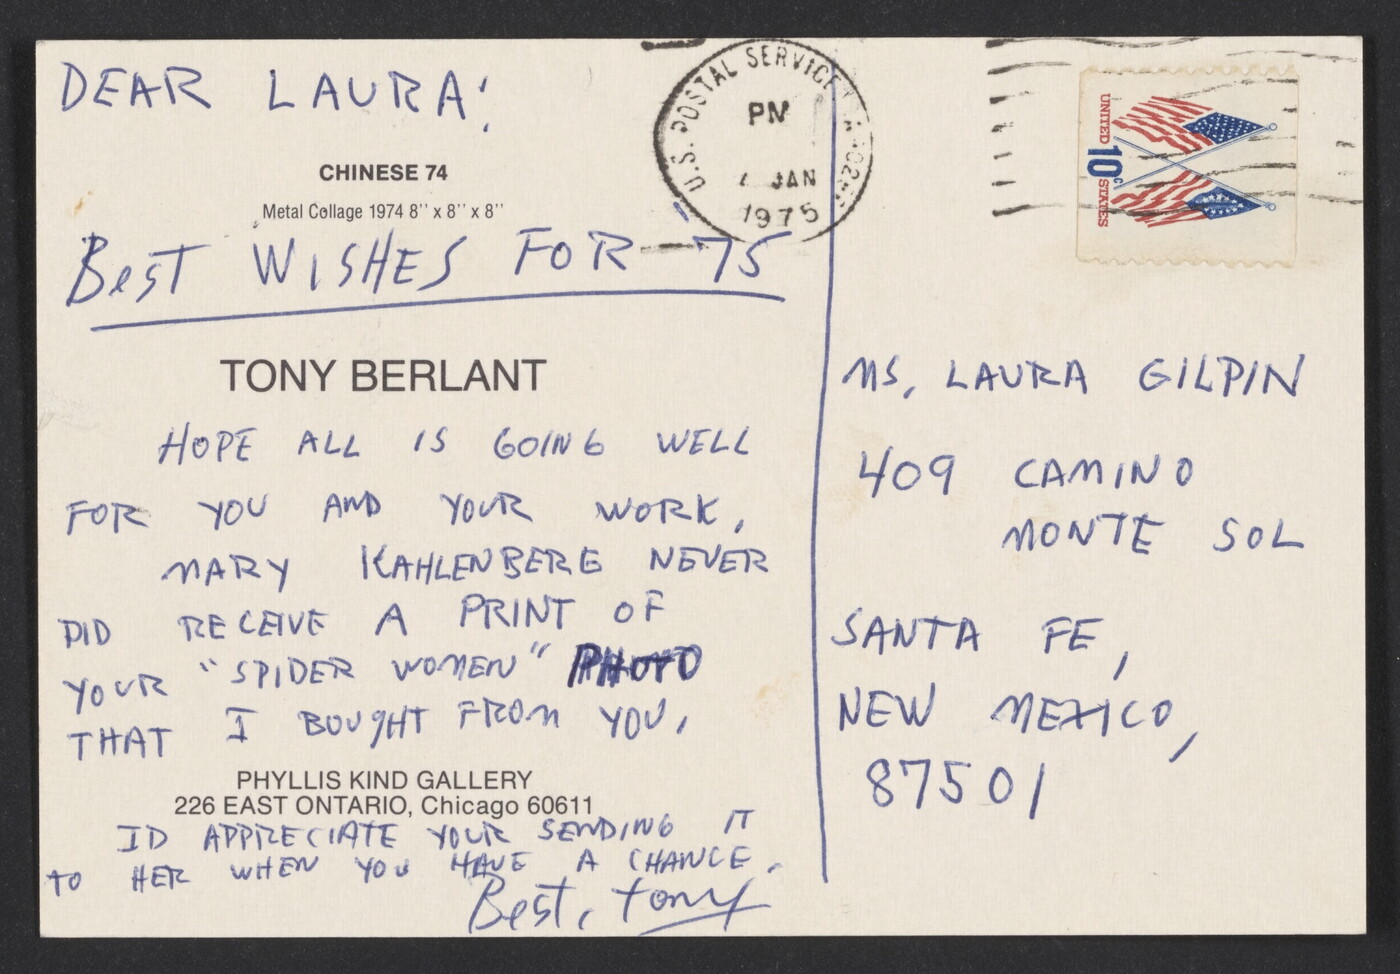 DEAR LAURA!
CHINESE 74
Metal Collage 1974 8'' x 8'' x 8''
BEST WISHES FOR 75
TONY BERLANT
HOPE ALL IS GOING WELL
FOR YOU AND YOUR WORK,
MARY KAHLENBERG NEVER
DID RECEIVE A PRINT OF
YOUR "SPIDER WOMEN" PHOTO
THAT I BOUGHT FROM YOU,
PHYLLIS KIND GALLERY
226 EAST ONTARIO, Chicago 60611
ID APPRECIATE YOUR SENDING IT
TO HER WHEN YOU HAVE A CHANCE.
Best, Tony
U.S. POSTAL SERVICE
PM
JAN
1975
UNITED STATES
10c
MS, LAURA GILPIN
409 CAMINO
MONTE SOL
SANTA FE,
NEW MEXICO,
87501